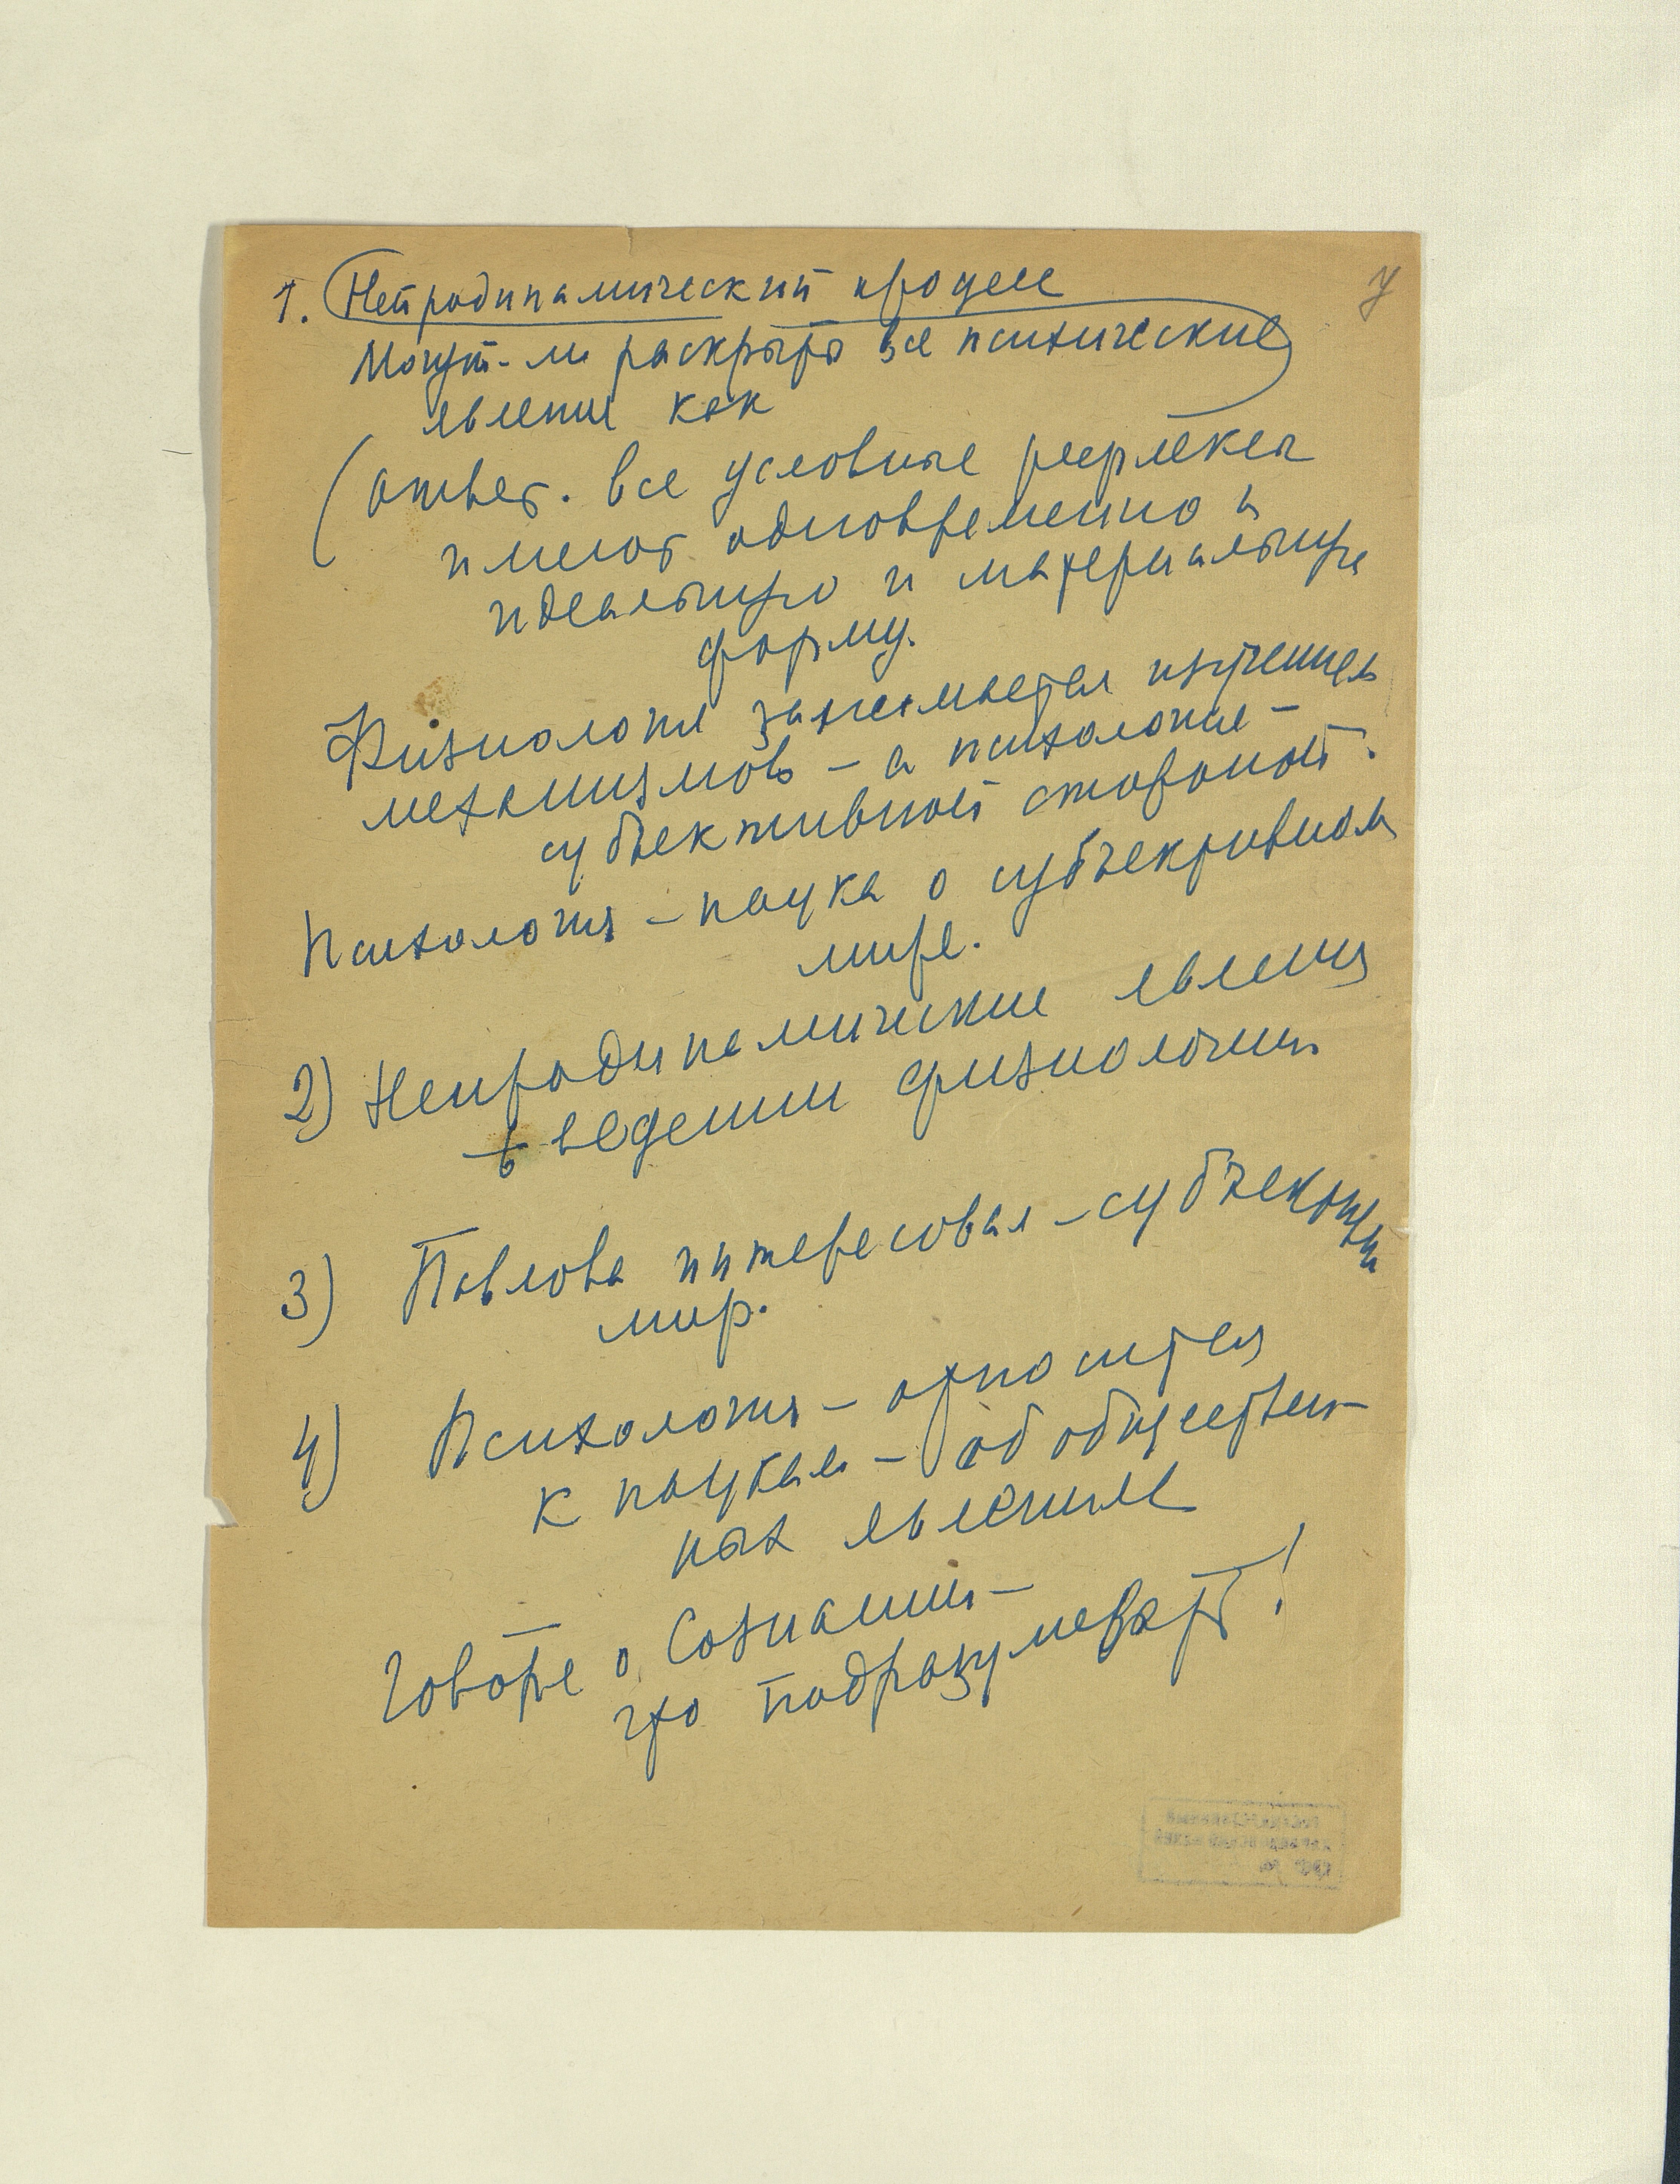 1. Нейродинамический процесс
Могут-ли раскрыть все психические
явления как
(ответ. все условные рефлексы
имеют одновременно и
идеальную и материальную
форму.
Физиология занимается изучением
механизмов – а психология –
субъективной стороной.
Психология – наука о субъективном
мире.
2) Нейродинамические явления
в ведении физиологии
3) Павлова интересовал – субъективный
мир.
4) Психология – относится
к наукам – об обществен-
ных явлениях
Говоря о Сознании –
что подразумевать!